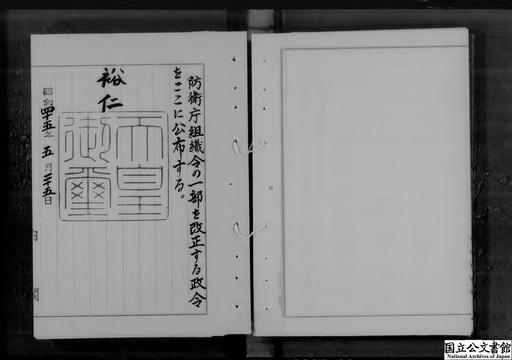 防衛庁組織令の一部を改正する政令
をここに公布する。
裕仁
天皇御璽
昭和四十五年五月二十五日
内閣
国立公文書館
National Archives of Japan